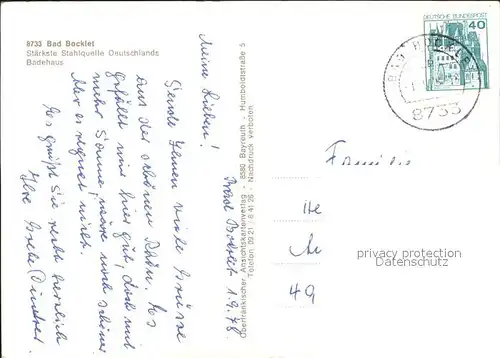 8733 Bad Bocklet
Stärkste Stahlquelle Deutschlands
Badehaus
Bad Bocklet 1.9.78
Meine Lieben!
Sende Ihnen viele Grüsse
aus der schönen Rhön. Es
gefällt mir hier gut, doch mit
mehr Sonne, wäre noch schöner
Aber es regnet nicht.
Es grüßt Sie recht herzlich
Ihre
Oberfränkischer Ansichtskartenverlag - 8580 Bayreuth - Humboldtstraße 5
Telefon: 09 21 - 6 41 26 - Nachdruck verboten.
DEUTSCHE BUNDESPOST
40
BAD BOCKLET
8733
49
privacy protection
watermark ansichtskarten-lexikon.de